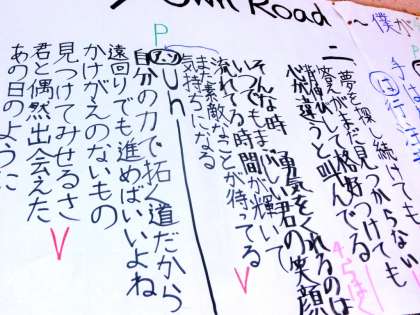 Own Road ～僕が
二
夢を探し続けても
答えがまだ見つからない
背伸びして格好つけても
心が違うと叫んでる
4拍
そんな時 勇気をくれるのは
いつもまぶしい君の笑顔
流れてる時間が輝いて
また素敵なことが待ってる
気持ちになる
V
P
Uh
自分の力で拓く道だから
遠回りでも進めばいいよね
かけがえのないもの
見つけてみせるさ
V
君と偶然出会えた
あの日のように